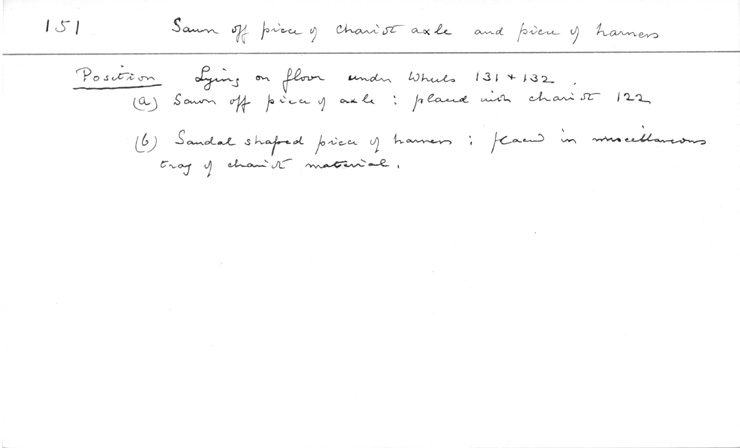 151 Sawn off piece of chariot axle and piece of harness
Position Lying on floor under Wheels 131 + 132.
(a) Sawn off piece of axle : placed with chariot 122
(b) Sandal shaped piece of harness : placed in miscellaneous
tray of chariot material.